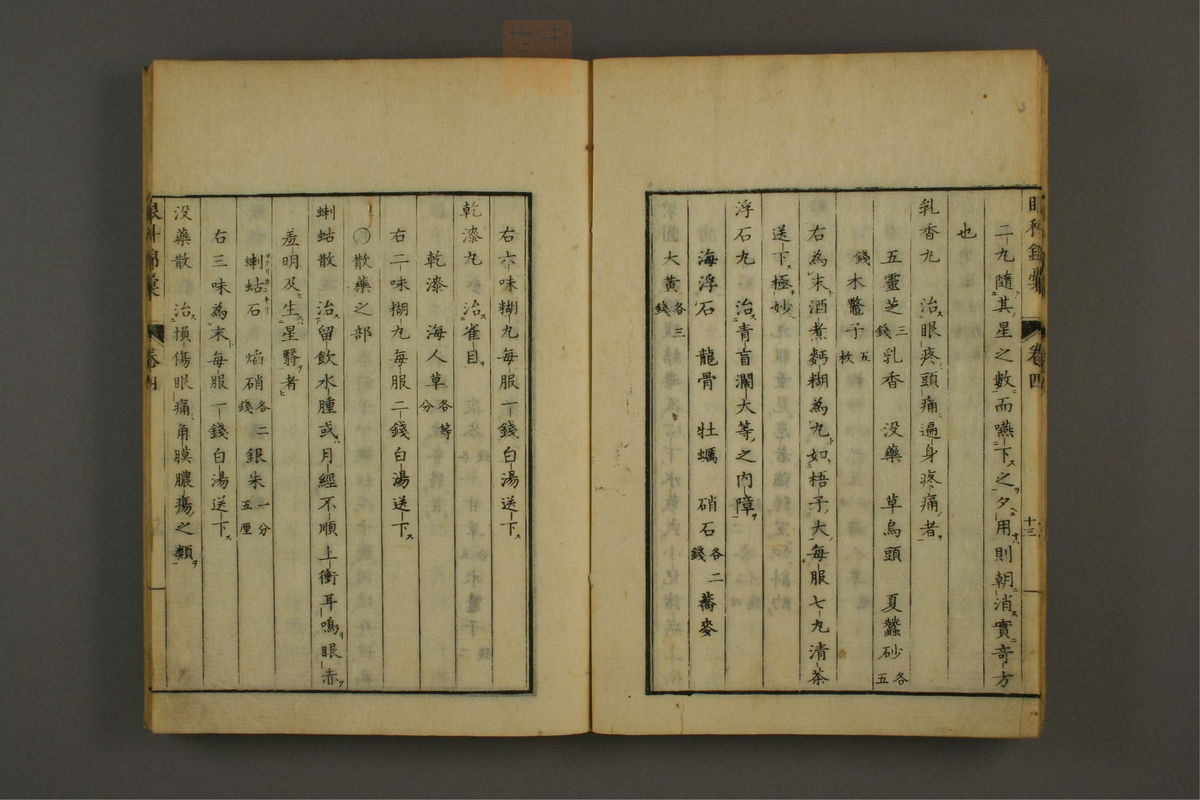 眼科錦囊 卷四 十三
二丸隨其星之數而嚥下之夕用則朝消實奇方
也
乳香丸 治眼疼頭痛遍身疼痛者
五靈芝三錢 乳香 没藥 草烏頭 夏蠶砂各五
錢 木鼈子五枚
右為末酒煮麪糊為丸如梧子大每服七丸清茶
送下極妙
浮石丸 治青盲濶大等之内障
海浮石 龍骨 牡蠣 硝石各二錢 蕎麥
大黄各三錢
右六味糊丸每服一錢白湯送下
乾漆丸 治雀目
乾漆 海人草各等分
右二味糊丸每服二錢白湯送下
〇散藥之部
蝲蛄散 治留飲水腫或月經不順上衝耳鳴眼赤
羞明及生星翳者
蝲蛄石 焰硝各二錢 銀朱一分五厘
右三味為末每服一錢白湯送下
没藥散 治損傷眼痛角膜膿瘍之類
眼科錦囊 卷四